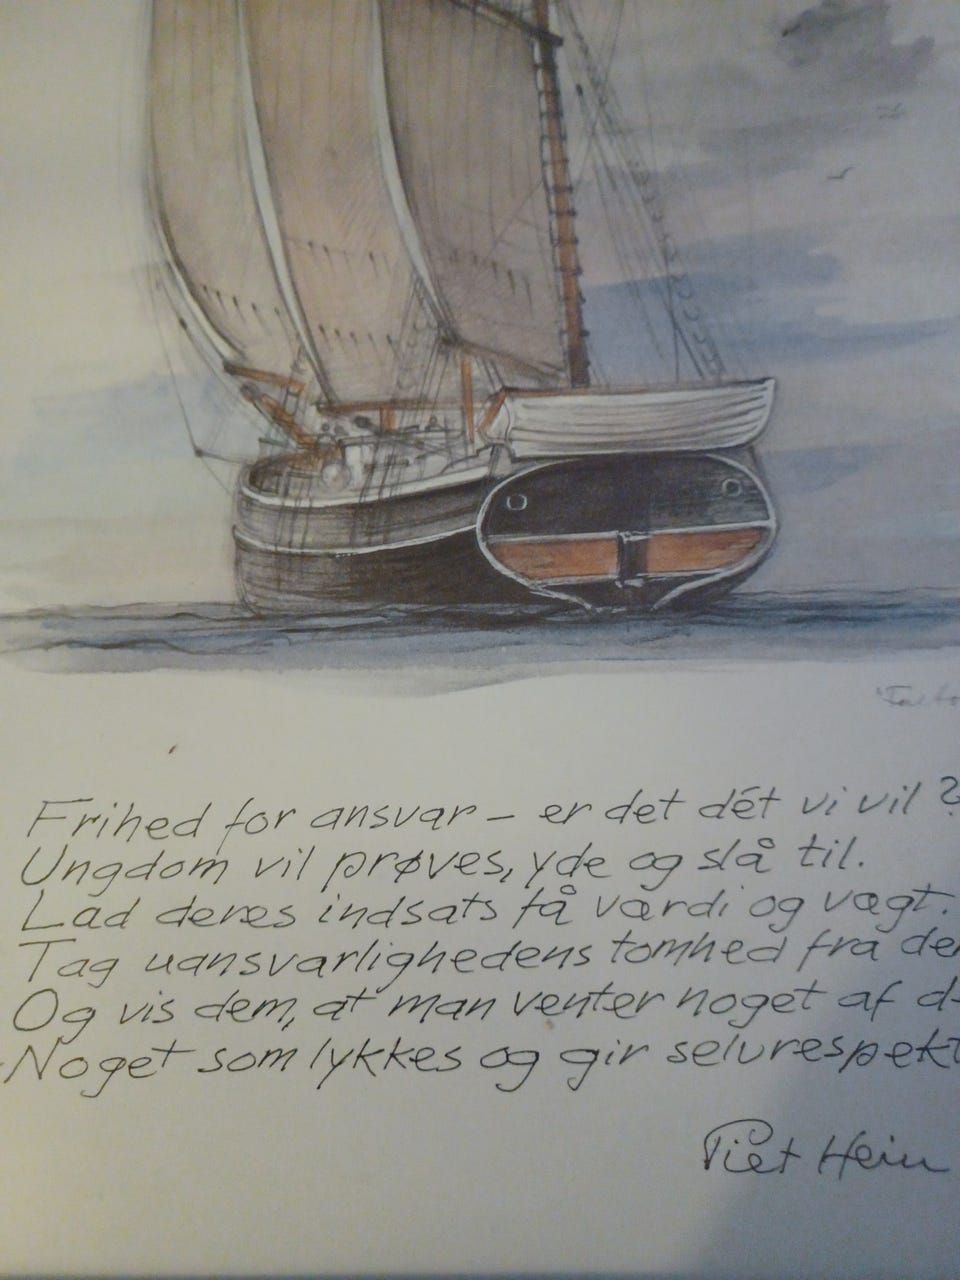 Frihed for ansvar – er det dét vi vil?
Ungdom vil prøves, yde og slå til.
Lad deres indsats få værdi og vægt.
Tag uansvarlighedens tomhed fra
Og vis dem, at man venter noget af
Noget som lykkes og gir selvrespekt
Piet Hein